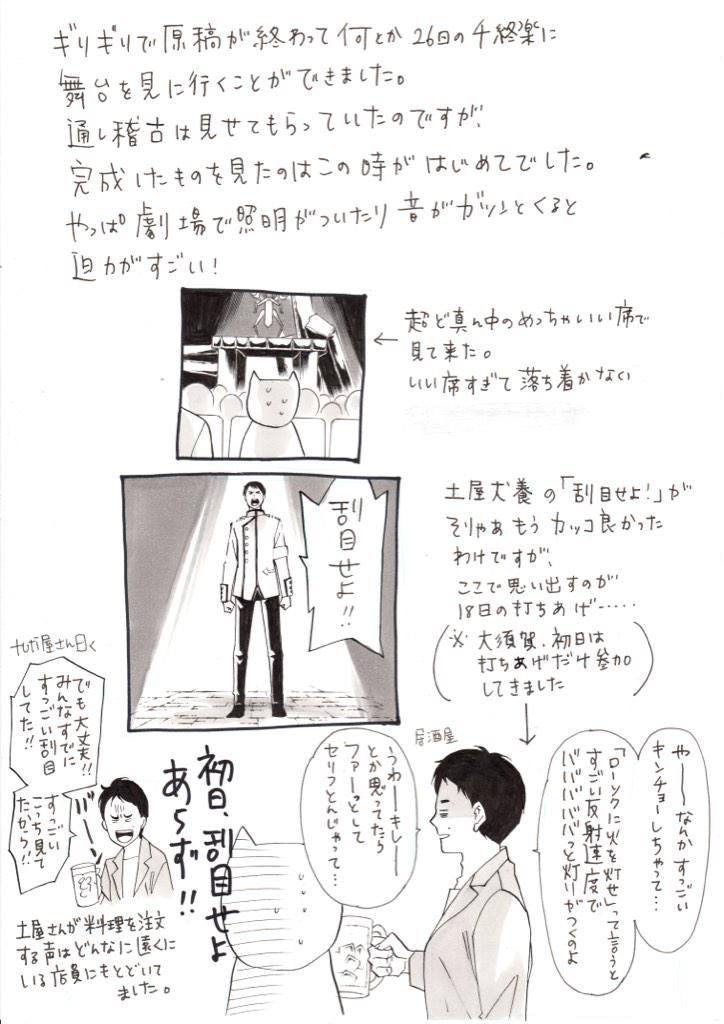 ギリギリで原稿が終わって何とか26日の千終楽に
舞台を見に行くことができました。
通し稽古は見せてもらっていたのですが、
完成したものを見たのはこの時がはじめてでした。
やっぱ劇場で照明がついたり音がガツンとくると
迫力がすごい!
← 超ど真ん中のめっちゃいい席で
見て来た。
いい席すぎて落ち着かない
刮目せよ!!
土屋犬養の「刮目せよ!」が
そりゃあもうカッコ良かった
わけですが、
ここで思い出すのが
18日の打ちあげ……
(※大須賀、初日は
打ちあげだけ参加
してきました)
居酒屋
やーーなんかすっごい
キンチョーしちゃって…
「ローソクに火を灯せ」って言うと
すごい反射速度で
バババババッと灯りがつくのよ
うわーーキレーー
とか思ってたら
ファーっとして
セリフとんじゃって…
初日、刮目せよ
あらず!!
土屋さん曰く
でも大丈夫!!
みんなすでに
すっごい刮目
してた!!
すっごい
こっち見て
たから!!
土屋さんが料理を注文
する声はどんなに遠くに
いる店員にもとどいて
ました。